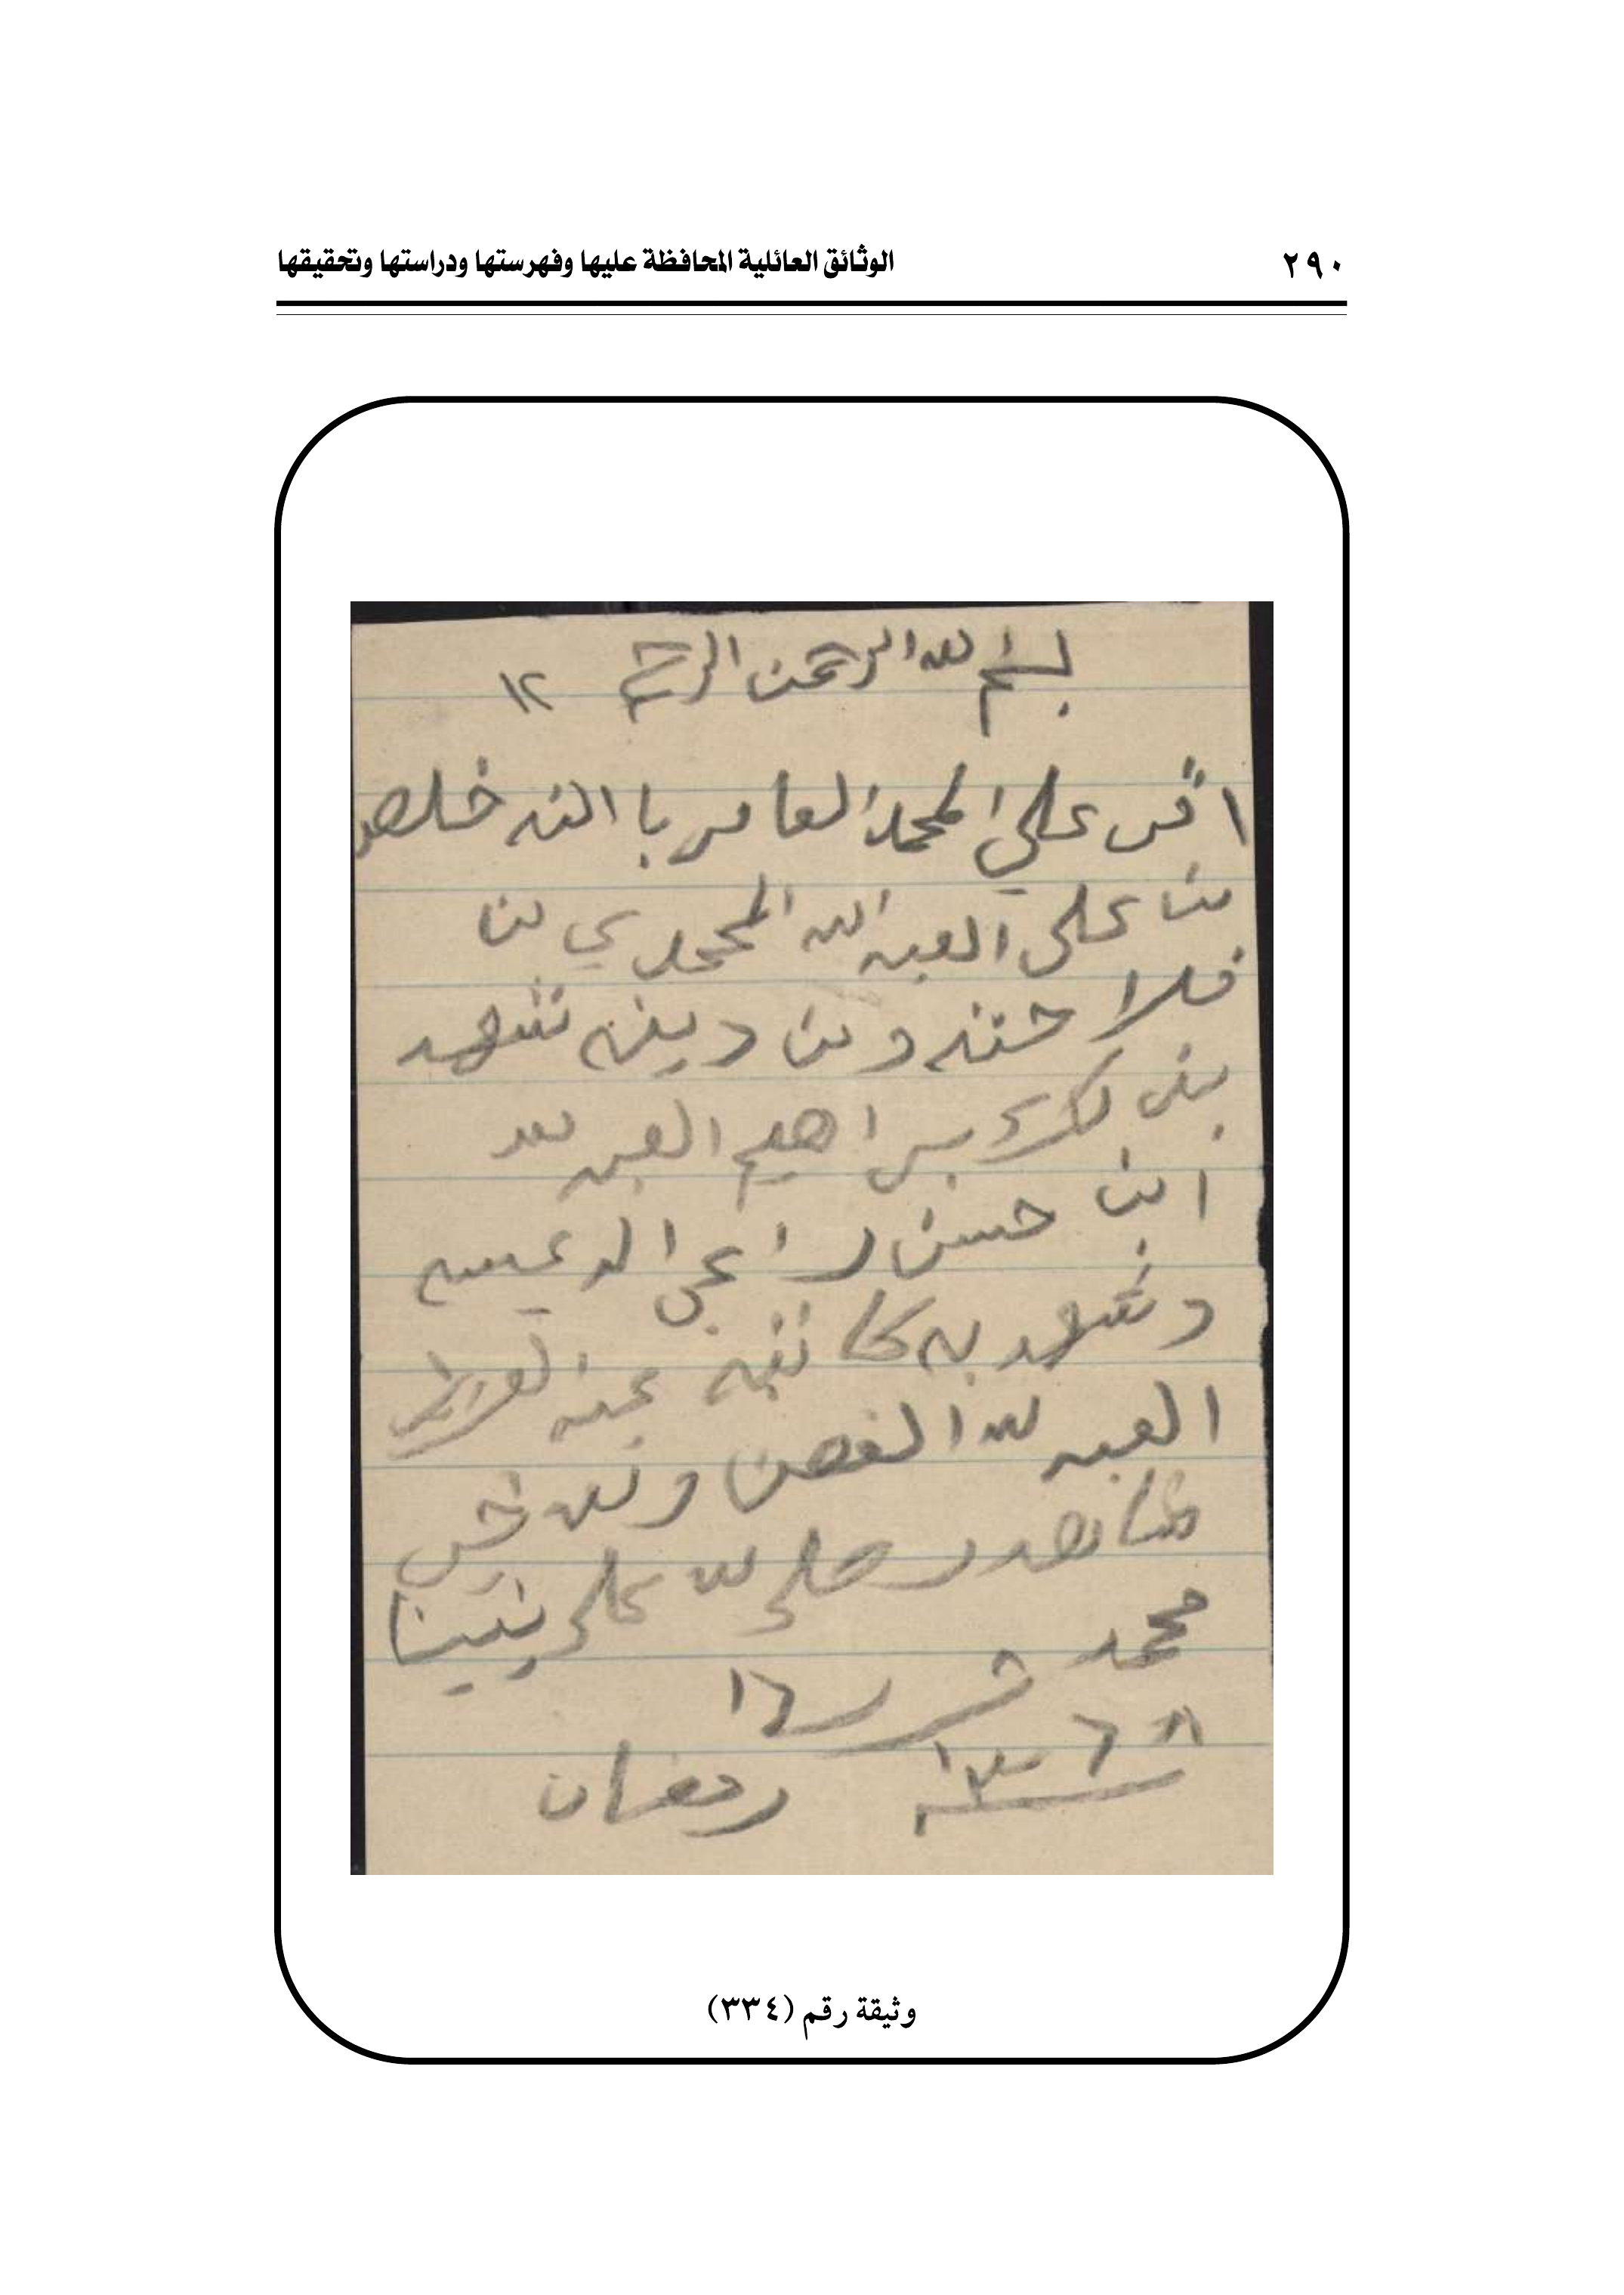 ٢٩٠
الوثائق العائلية المحافظة عليها وفهرستها ودراستها وتحقيقها
بسم الله الرحمن الرحيم ١٢
اقر علي المحمد العامر با النه خلص
من علي العبد الله المحمدي من
فلاحته ومن دينه شهد
بذلك براهيم العبد لله
ابن حسن راعي الدعيسه
وشهد به كاتبه عبد العزيز
العبد لله الغصن والله خير
شاهد وصلى لله على نبينا
محمد حرر ١٦
١٣٦٨ رمضان
وثيقة رقم (٣٣٤)